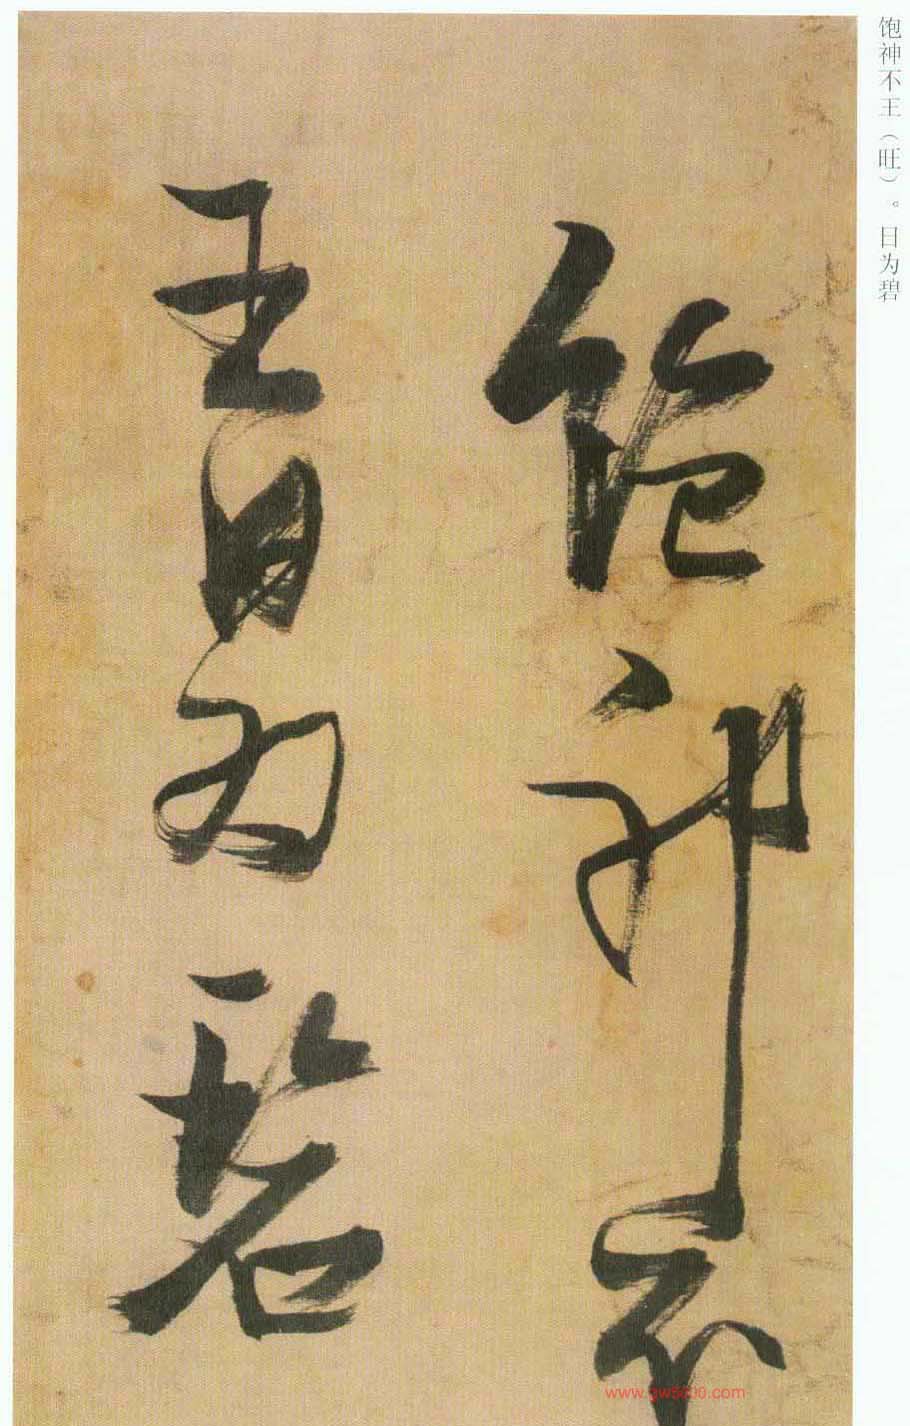 饱神不王（旺）。日为碧
飽神不
王日為碧
www.gw5200.com